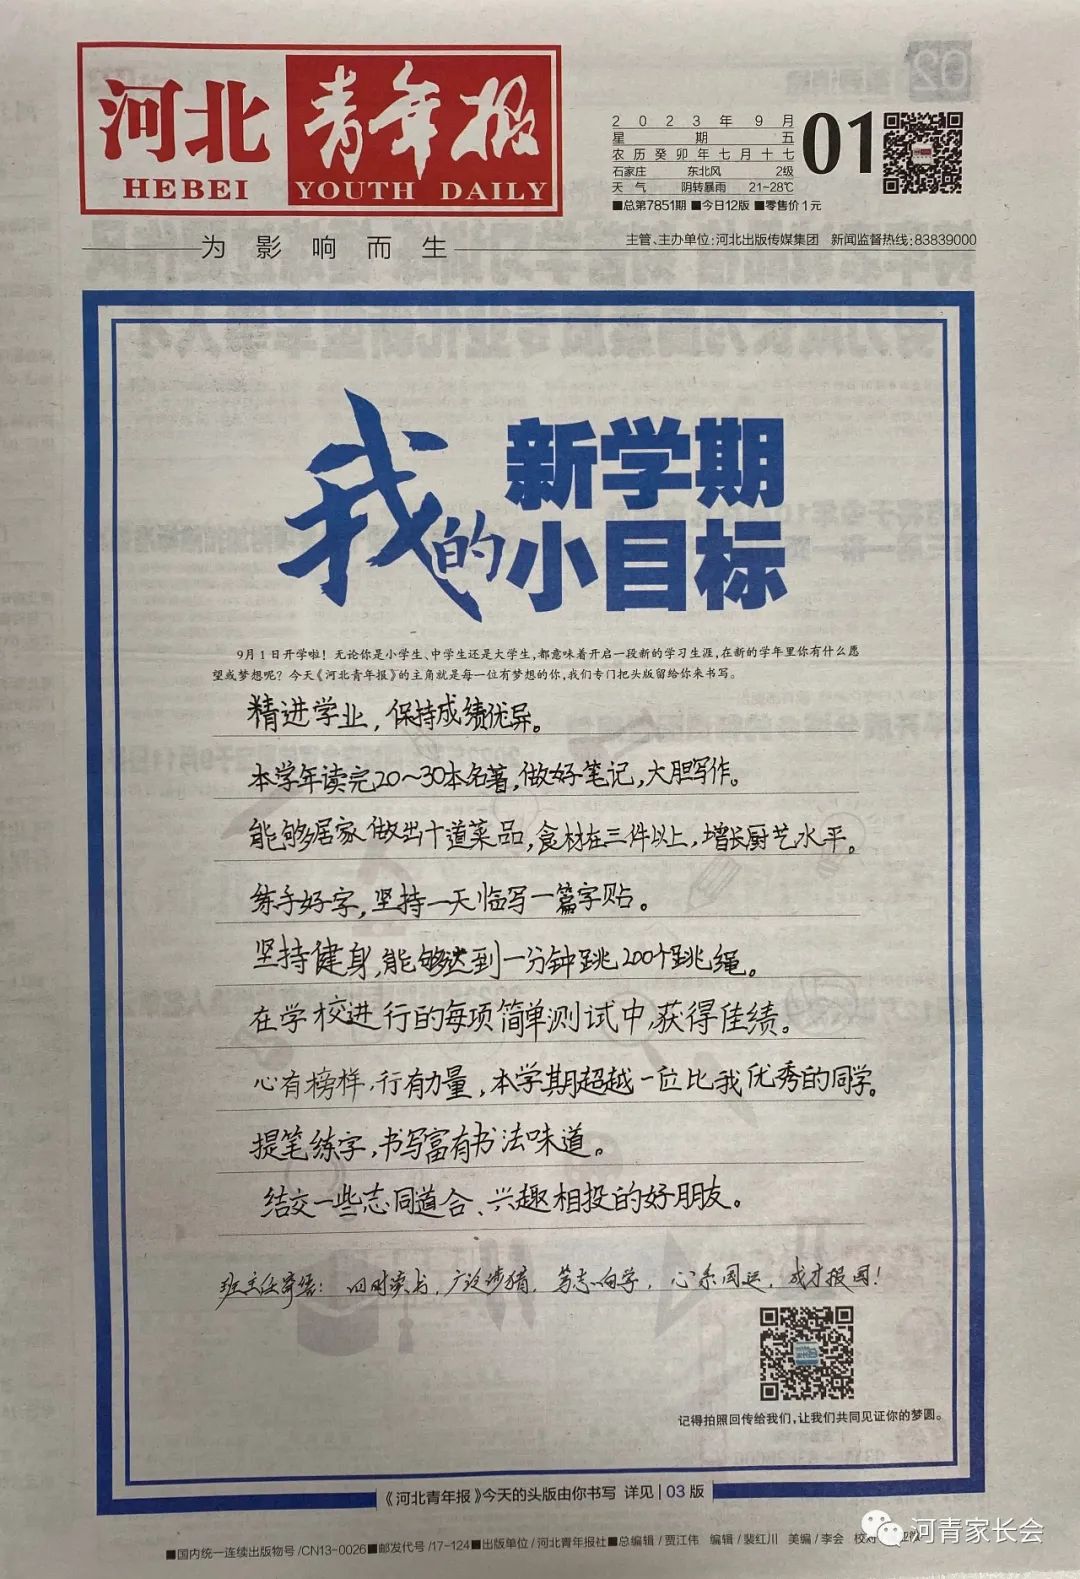 河北青年报
HEBEI YOUTH DAILY
2023年9月
星期五
农历癸卯年七月十七
石家庄 东北风 2级
天气 阴转暴雨 21-28℃
01
■总第7851期 ■今日12版 ■零售价1元
为影响而生
主管、主办单位:河北出版传媒集团 新闻监督热线:83839000
我的新学期小目标
9月1日开学啦!无论你是小学生、中学生还是大学生,都意味着开启一段新的学习生涯,在新的学年里你有什么愿
望或梦想呢?今天《河北青年报》的主角就是每一位有梦想的你,我们专门把头版留给你来书写。
精进学业,保持成绩优异。
本学年读完20~30本名著,做好笔记,大胆写作。
能够居家做出十道菜品,食材在三件以上,增长厨艺水平。
练手好字,坚持一天临写一篇字贴。
坚持健身,能够达到一分钟跳200个跳绳。
在学校进行的每项简单测试中,获得佳绩。
心有榜样,行有力量,本学期超越一位比我优秀的同学。
提笔练字,书写富有书法味道。
结交一些志同道合、兴趣相投的好朋友。
班主任寄语:四时读书,广泛涉猎,笃志向学,心系国运,成才报国!
记得拍照回传给我们,让我们共同见证你的梦圆。
《河北青年报》今天的头版由你书写 详见|03版
■国内统一连续出版物号/CN13-0026■邮发代号/17-124■出版单位/河北青年报社■总编辑/贾江伟 编辑/裴红川 美编/李会 校对
河青家长会